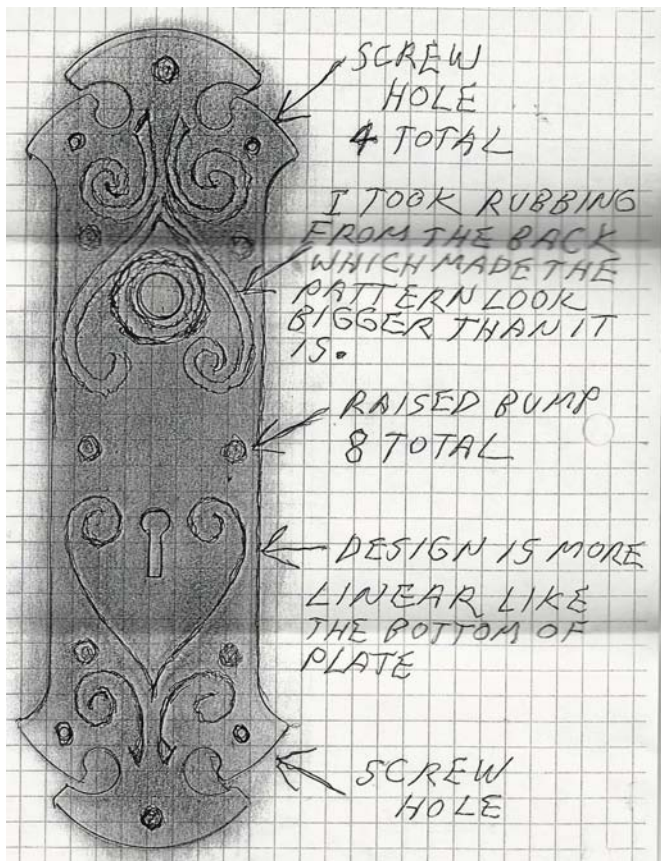 SCREW
HOLE
4 TOTAL
I TOOK RUBBING
FROM THE BACK
WHICH MADE THE
PATTERN LOOK
BIGGER THAN IT
IS.
RAISED BUMP
8 TOTAL
DESIGN IS MORE
LINEAR LIKE
THE BOTTOM OF
PLATE
SCREW
HOLE